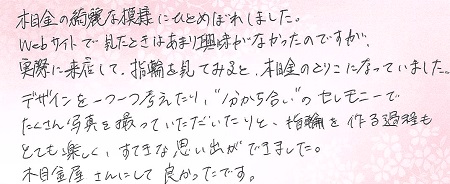 木目金の綺麗な模様にひとめぼれしました。
Webサイトで見たときはあまり興味がなかったのですが、
実際に来店して、指輪を見てみると、木目金のとりこになっていました。
デザインを一つ一つ考えたり、"分かち合い"のセレモニーで
たくさん写真を撮っていただいたりと、指輪を作る過程も
とても楽しく、すてきな思い出ができました。
木目金屋さんにして良かったです。